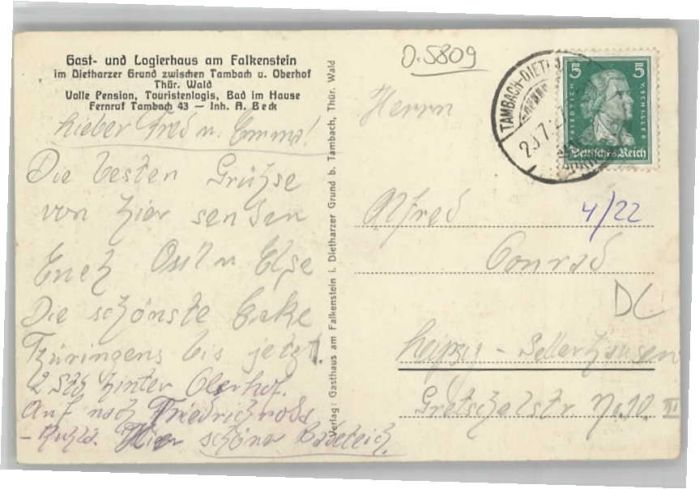 Gast- und Logierhaus am Falkenstein
im Dietharzer Grund zwischen Tambach u. Oberhof
Thür. Wald
Volle Pension, Touristenlogis, Bad im Hause
Fernruf Tambach 43 — Inh. A. Beck
Lieber Fred u. Emma!
Die besten Grüße
von hier senden
Euch Ossi u Else
Die schönste Ecke
Thüringens bis jetzt.
2 Std hinter Oberhof.
Auf nach Friedrichroda
- Ruhla. Hier schöner Badeteich.
Verlag: Gasthaus am Falkenstein i. Dietharzer Grund b. Tambach, Thür. Wald
O.5809
TAMBACH-DIET
5 5
FRIEDRICH V. SCHILLER
Deutsches Reich
Herrn
Alfred
4/22
Conrad
DC
Leipzig - Sellerhausen
Str No. 10 III